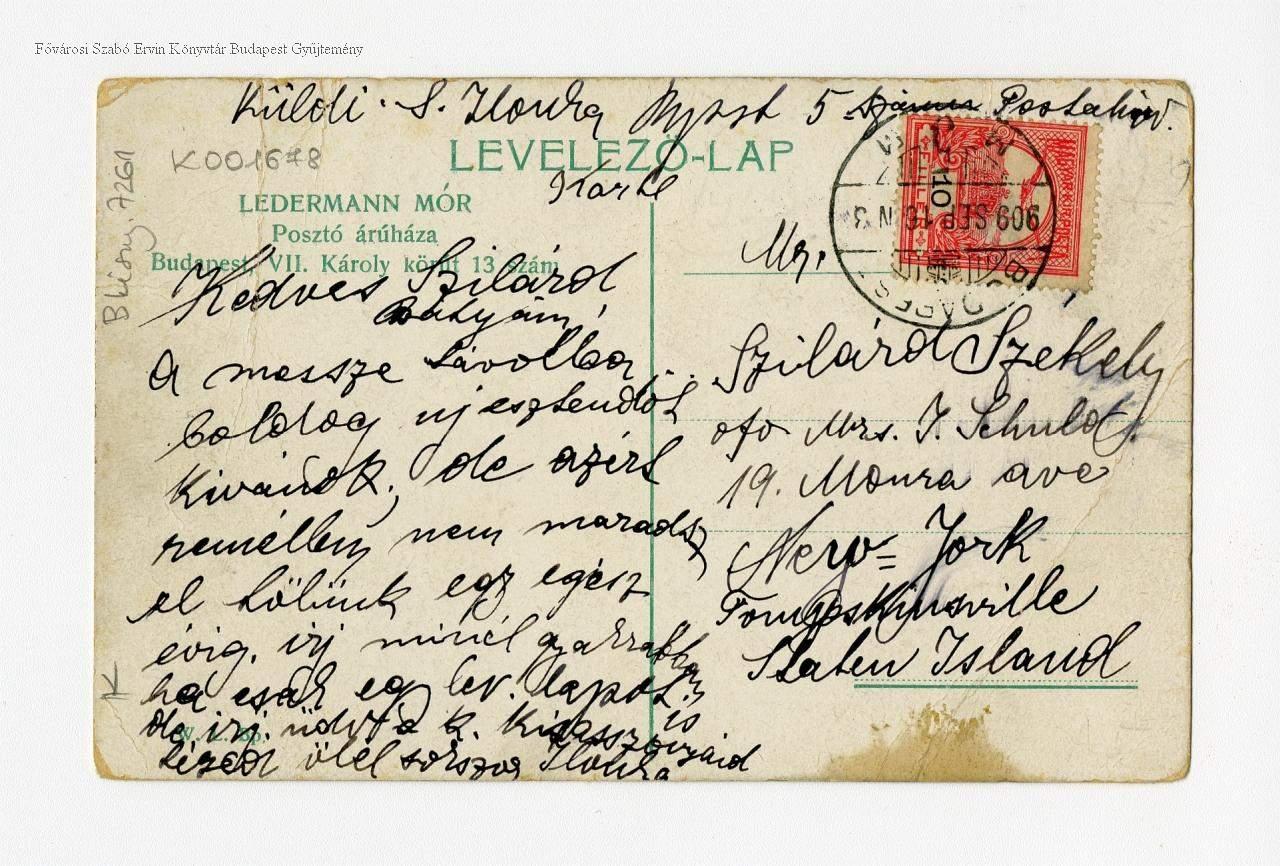 Fővárosi Szabó Ervin Könyvtár Budapest Gyűjtemény
Küldi. S. Ilonka 5 Postahiv.
LEVELEZŐ-LAP
K001678
LEDERMANN MÓR
Posztó árúháza
Budapest, VII. Károly körút 13 szám
Kedves Szilárd
Bátyám!
A messze távolba
boldog ujesztendőt
Kivánok, de azért
remélem nem maradsz
el tölünk egy egész
évig, irj minél gyakrabban
ha csak egy lev. lapot is
de irj. üdv. a k. Kisasszonyaid
téged ölel sokszor Ilonka
Mr.
Szilárd Szekely
Mrs. J. Schuld.
19. Monra ave
New= Jork
Tompskinsville
Staten Island
909 SEP 16 N 3
10
MAGYAR KIR. POSTA